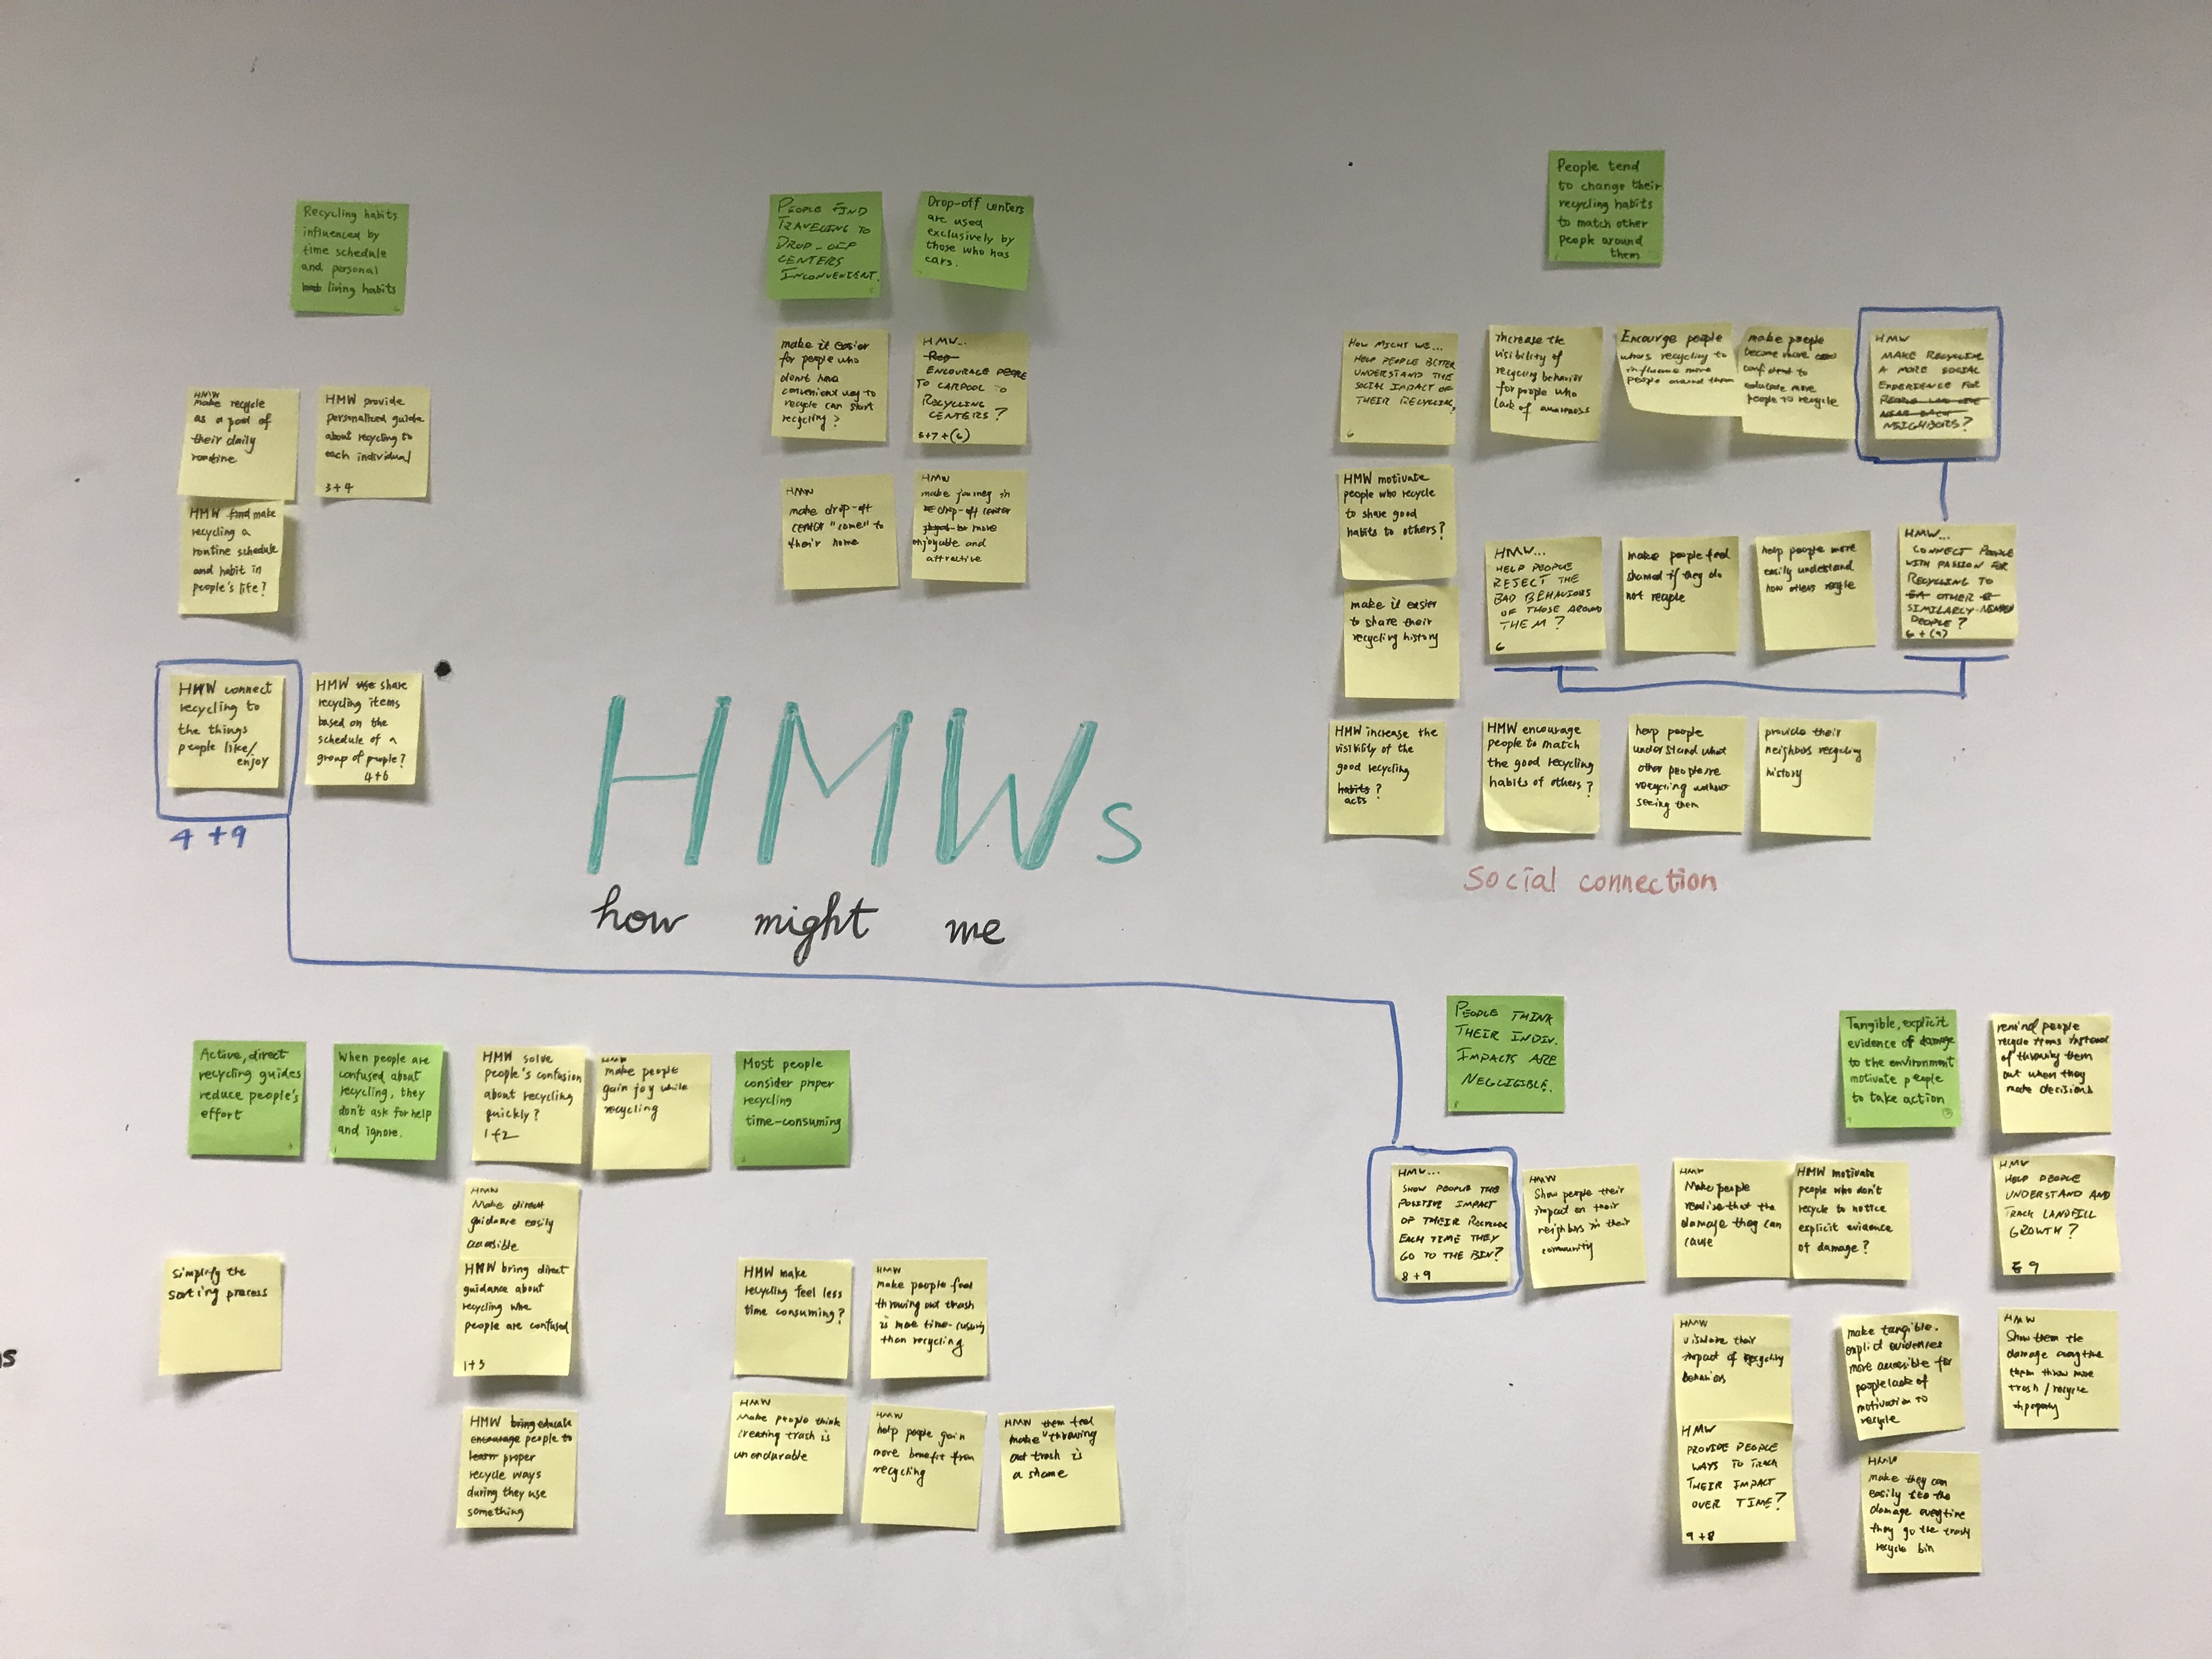 Recycling habits
influenced by
time schedule
and personal
living habits
HMW
make recycle
as a pool of
their daily
routine
HMW provide
personalized guide
about recycling to
each individual
3+4
HMW find make
recycling a
routine schedule
and habit in
people's life?
HMW connect
recycling to
the things
people like/
enjoy
4 +9
HMW use share
recycling items
based on the
schedule of a
group of people?
4+6
PEOPLE FIND
TRAVELING TO
DROP-OFF
CENTERS
INCONVENIENT.
5
Drop-off centers
are used
exclusively by
those who has
cars.
make it easier
for people who
don't have
convenient way to
recycle can start
recycling?
HMW...
ENCOURAGE PEOPLE
TO CARPOOL TO
RECYCLING
CENTERS?
5+7+(6)
HMW
make drop-off
center "come" to
their home
HMW
make journey in
drop-off center
more
enjoyable and
attractive
People tend
to change their
recycling habits
to match other
people around
them
HOW MIGHT WE...
HELP PEOPLE BETTER
UNDERSTAND THE
SOCIAL IMPACT OF
THEIR RECYCLING?
6
increase the
visibility of
recycling behavior
for people who
lack of awareness
Encourge people
whors recycling to
influence more
people around them
make people
become more
confident to
educate more
people to recycle
HMW
MAKE RECYCLING
A MORE SOCIAL
EXPERIENCE FOR
PEOPLE WHO LIVE
NEAR EACH
NEIGHBORS?
HMW motivate
people who recycle
to share good
habits to others?
make it easier
to share their
recycling history
HMW...
HELP PEOPLE
REJECT THE
BAD BEHAVIORS
OF THOSE AROUND
THEM?
6
make people feel
shamed if they do
not recycle
help people more
easily understand
how others recycle
HMW...
CONNECT PEOPLE
WITH PASSION FOR
RECYCLING TO
OTHER
SIMILARLY-MINDED
PEOPLE?
6+(9)
HMW increase the
visibility of the
good recycling
habits ?
acts
HMW encourage
people to match
the good recycling
habits of others?
help people
understand what
other people're
recycling without
seeing them
provide their
neighbors recycling
history
Social connection
HMWs
how might we
Active, direct
recycling guides
reduce people's
effort
3
When people are
confused about
recycling, they
don't ask for help
and ignore.
1
HMW solve
people's confusion
about recycling
quickly?
1+2
HMW
make people
gain joy while
recycling
Most people
consider proper
recycling
time-consuming
2
simplify the
sorting process
HMW
Make direct
guidance easily
accessible
HMW bring direct
guidance about
recycling whe
people are confused
1+3
HMW bring educate
encourage people to
learn proper
recycle ways
during they use
something
HMW make
recycling feel less
time consuming?
HMW
make people feel
throwing out trash
is more time-
than recycling
HMW
Make people think
creating trash is
unendurable
HMW
help people gain
more benefit from
recycling
HMW them feel
make throwing
out trash is
a shame
PEOPLE THINK
THEIR INDIV.
IMPACTS ARE
NEGLIGIBLE.
8
HMW...
SHOW PEOPLE THE
POSITIVE IMPACT
OF THEIR RECYCLING
EACH TIME THEY
GO TO THE BIN?
8+9
HMW
Show people their
impact on their
neighbors in their
community
Tangible, explicit
evidence of damage
to the environment
motivate people
to take action
9
remind people
recycle items instead
of throwing them
out when they
made decisions
HMW
Make people
realize that the
damage they can
cause
HMW motivate
people who don't
recycle to notice
explicit evidence
of damage?
HMW
HELP PEOPLE
UNDERSTAND AND
TRACK LANDFILL
GROWTH?
9
HMW
visualize their
impact of recycling
behaviors
make tangible.
explicit evidences
more accessible for
people lack of
motivation to
recycle
HMW
Show them the
damage everytime
them throw more
trash / recycle
HMW
PROVIDE PEOPLE
WAYS TO TRACK
THEIR IMPACT
OVER TIME?
9+8
HMW
make they can
easily see the
damage everytime
they go the trash
recycle bin